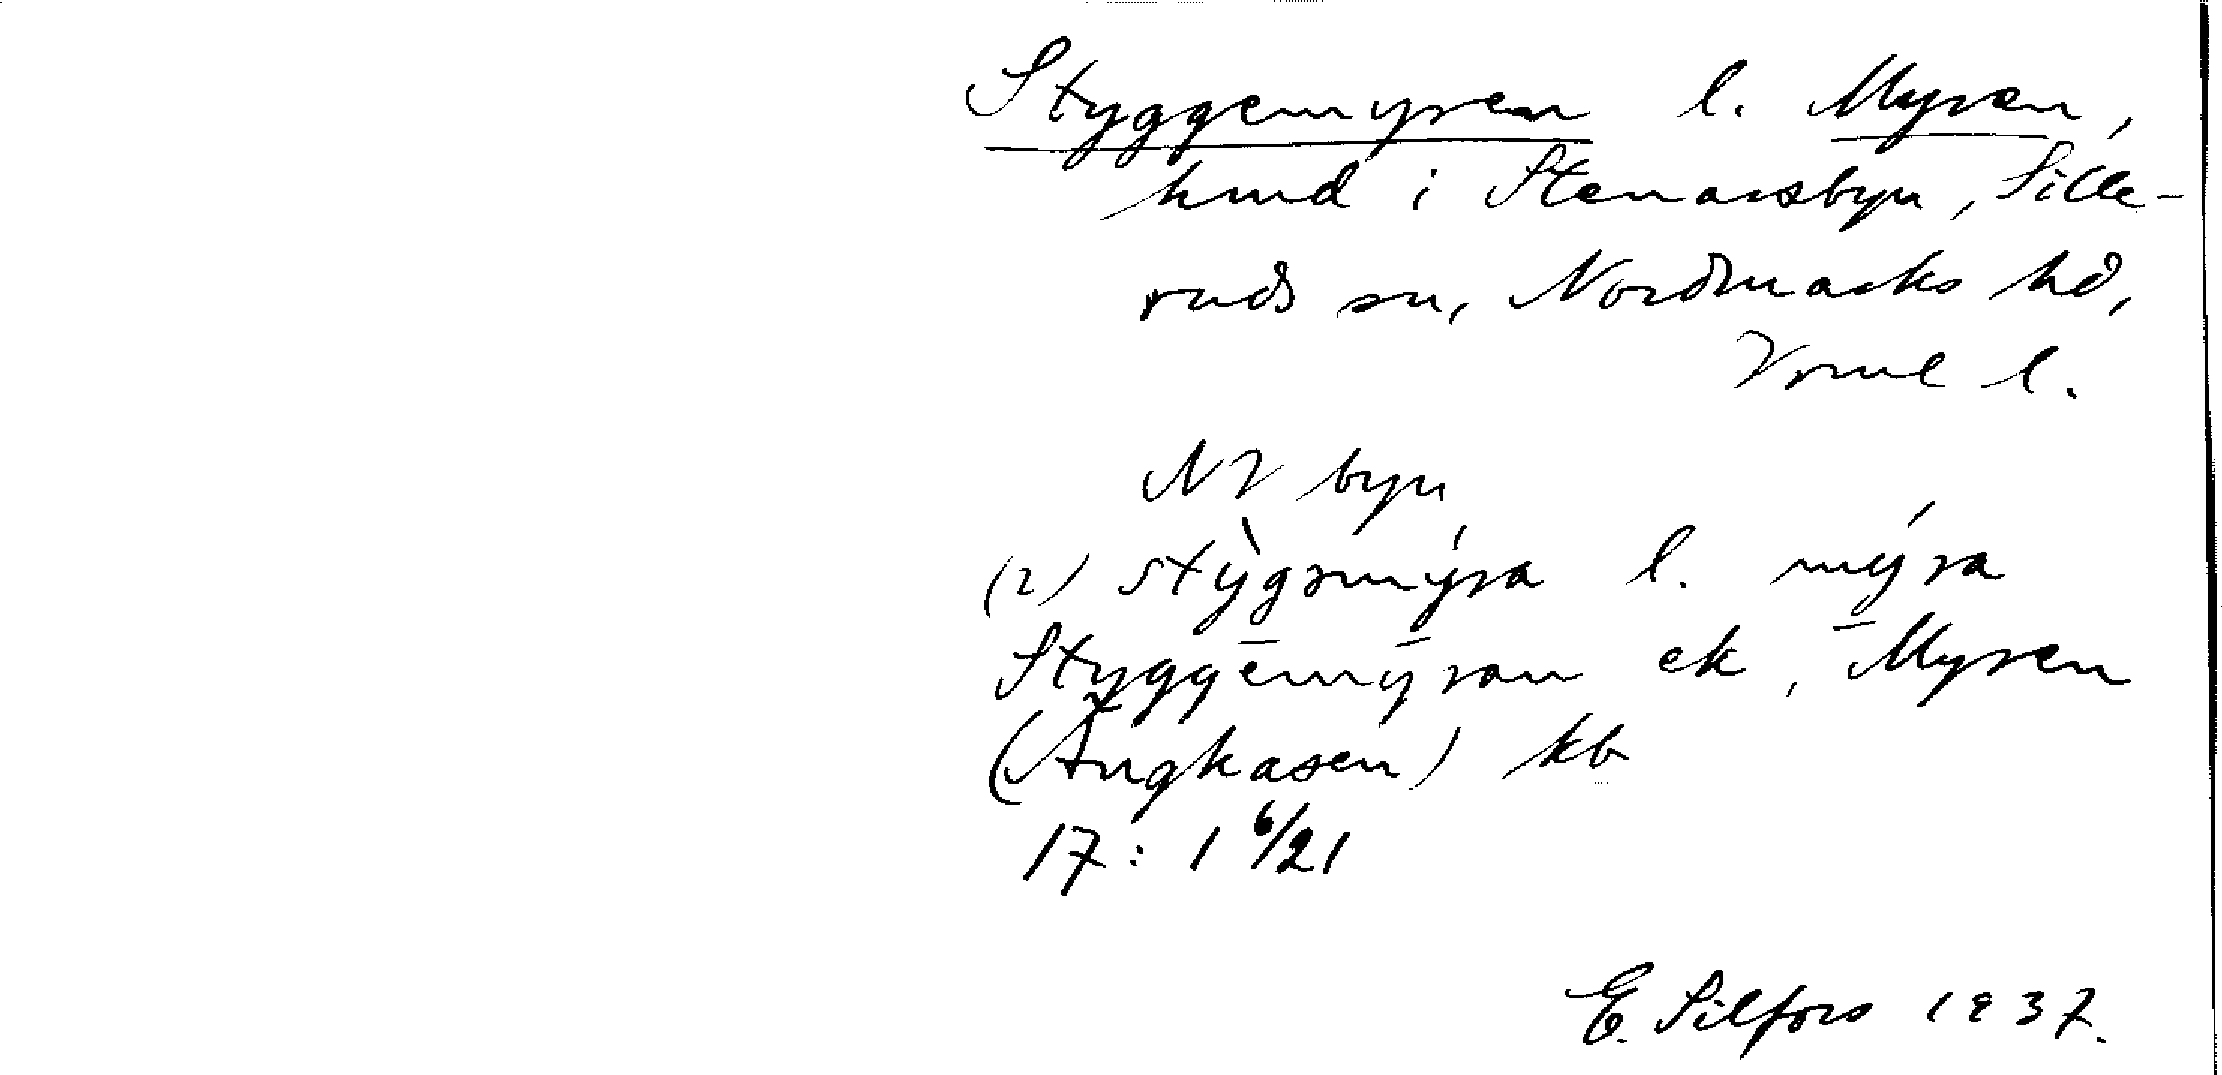 Styggemyren l. Myren,
hmd i Stenarsbyn, Sille-
ruds sn, Nordmarks hd,
Vrml l.
NV byn
(2) stỳgəmýra l. mýra
Styggemyran ek, Myren
(Ängkasen) kb
17: 1 6/21
E. Silfors 1937.